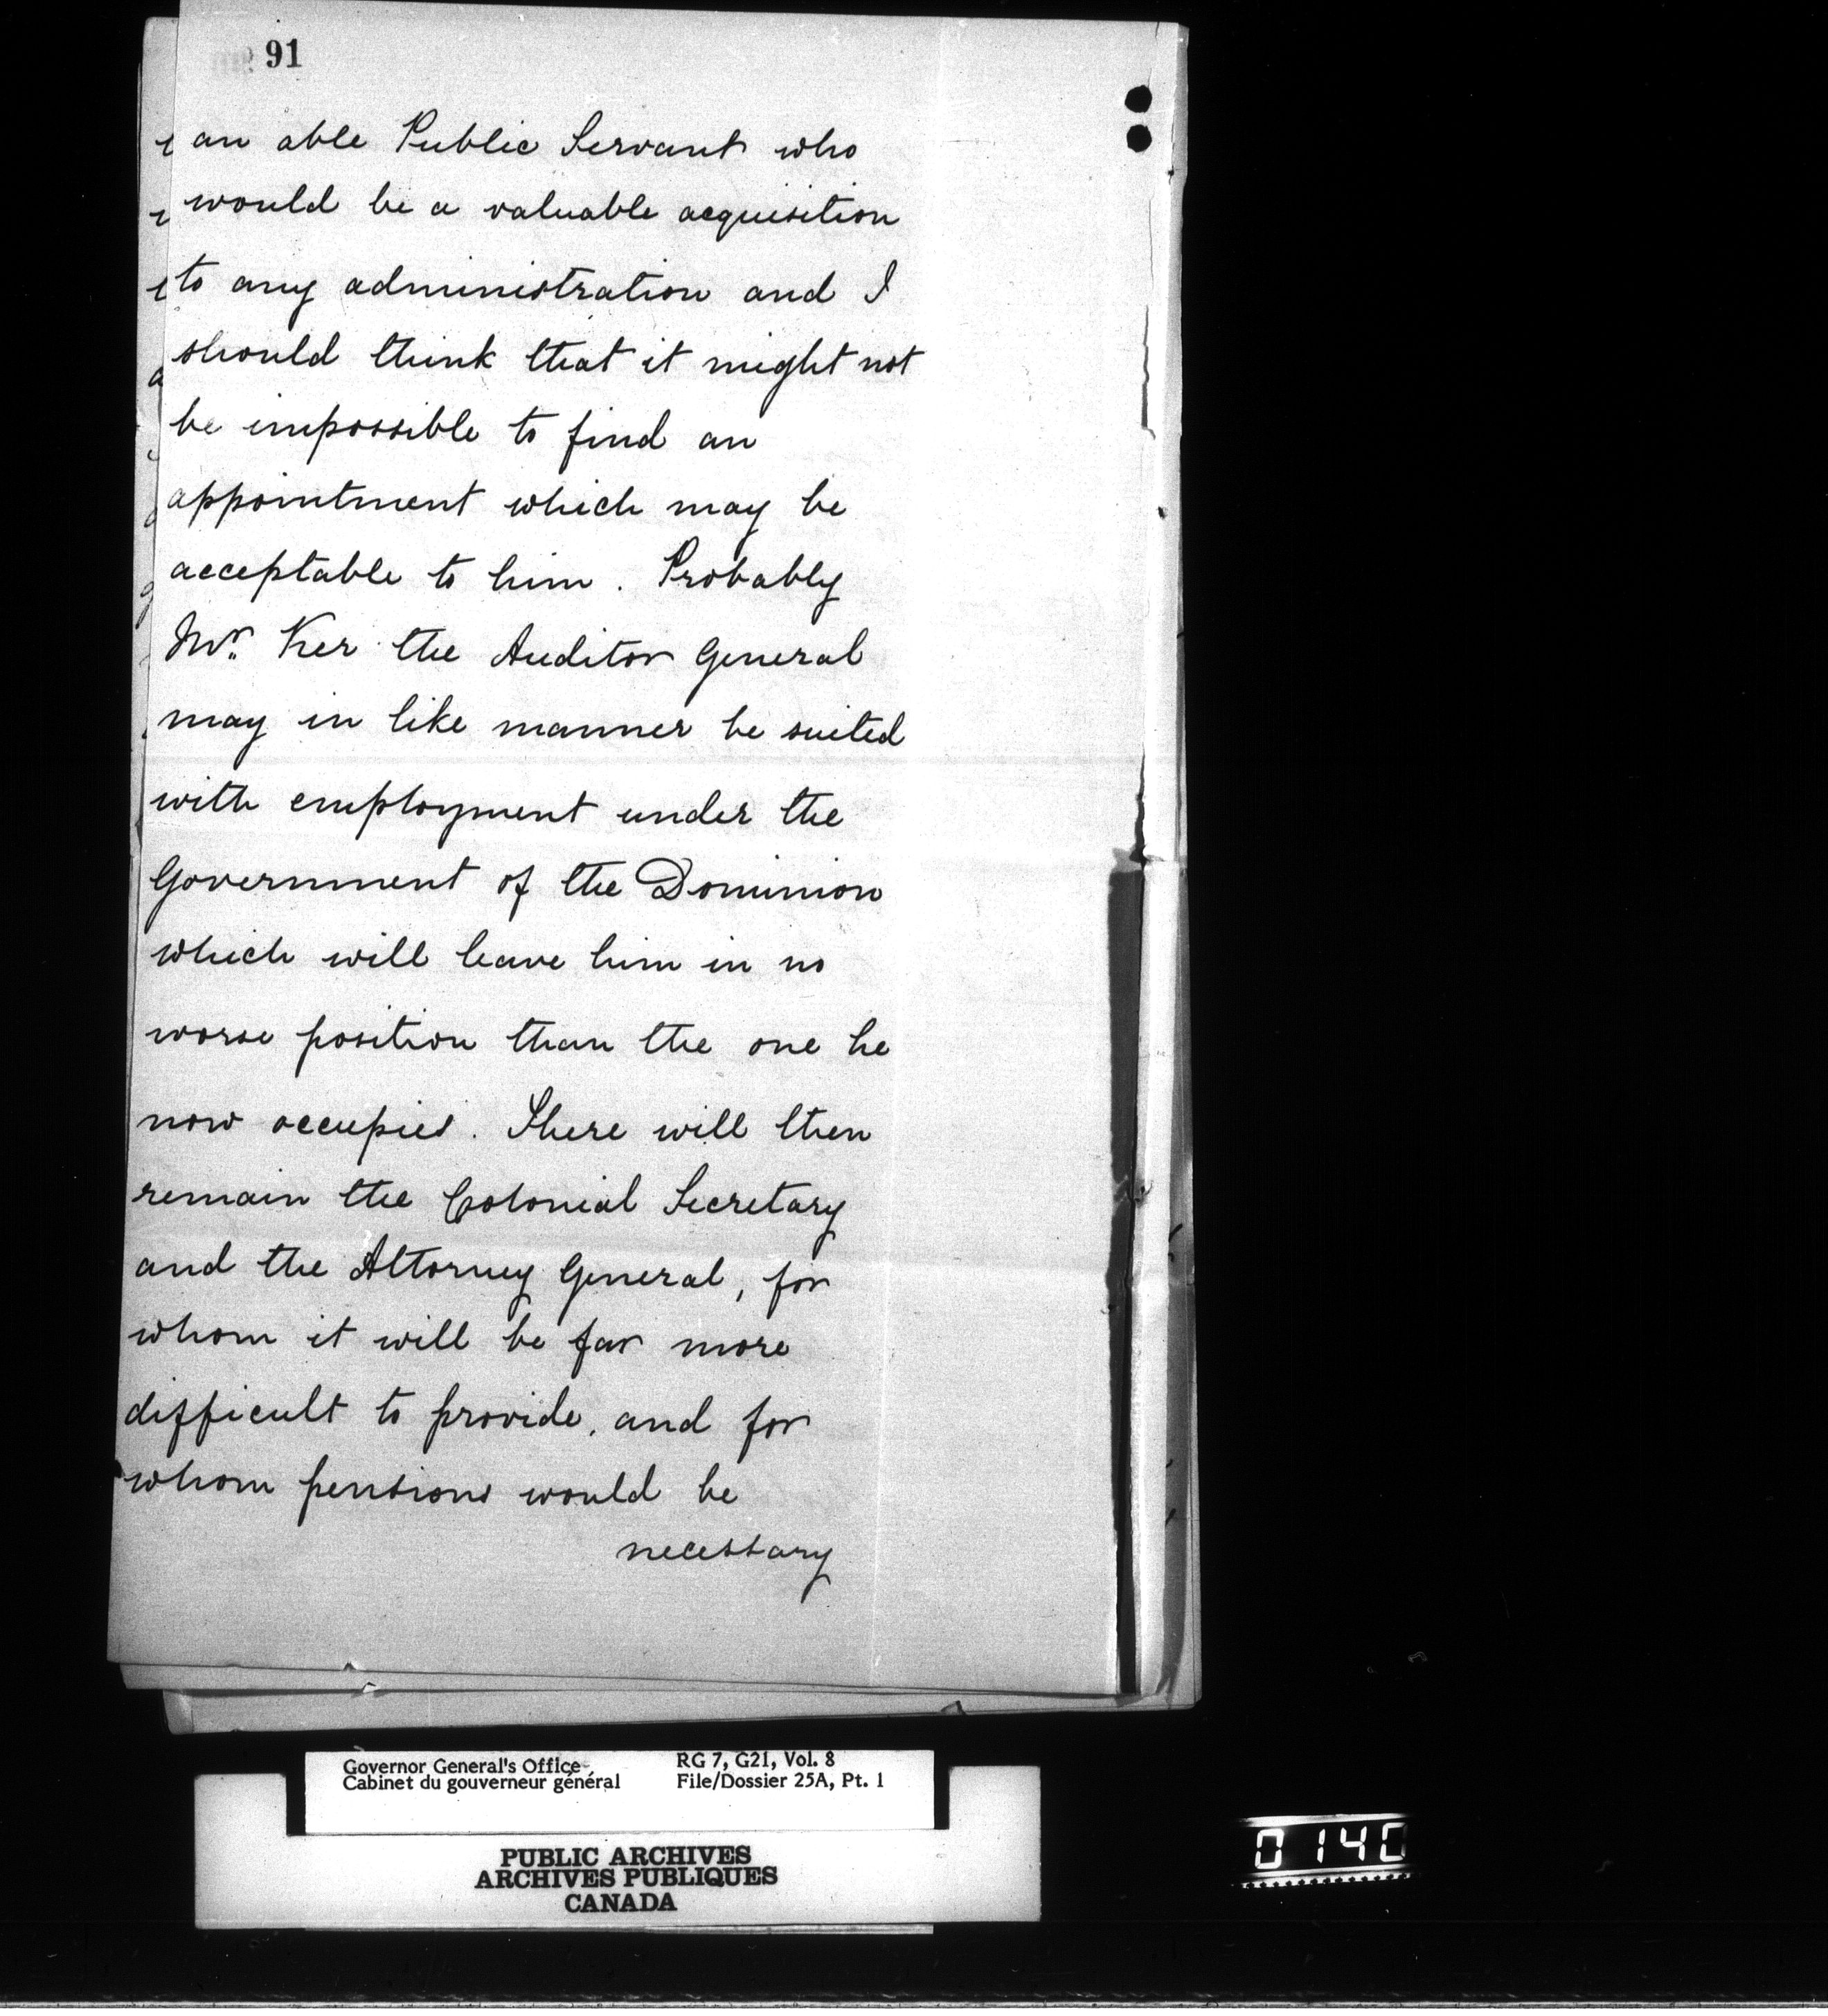 91
an able Public Servant who
would be a valuable acquisition
to any administration and I
should think that it might not
be impossible to find an
appointment which may be
acceptable to him. Probably
Mr. Ker the Auditor General
may in like manner be suited
with employment under the
Government of the Dominion
which will leave him in no
worse position than the one he
now occupies. There will then
remain the Colonial Secretary
and the Attorney General, for
whom it will be far more
difficult to provide, and for
whom pensions would be
necessary
Governor General's Office
Cabinet du gouverneur général
RG 7, G21, Vol. 8
File/Dossier 25A, Pt. 1
PUBLIC ARCHIVES
ARCHIVES PUBLIQUES
CANADA
0140